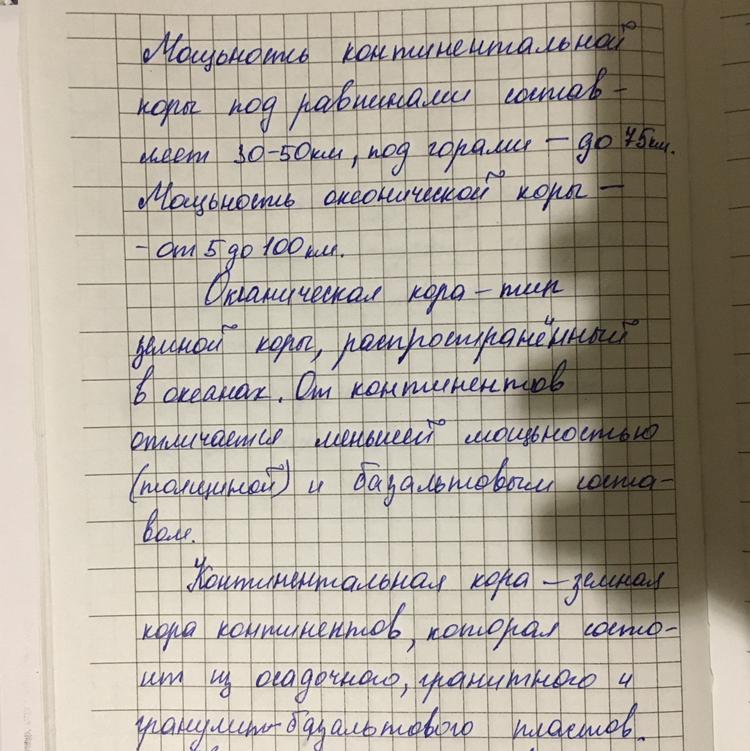 Мощьность континентальной
коры под равнинами состав-
ляет 30-50км, под горами - до 75км.
Мощьность океонической коры -
- от 5 до 100км.
Океаническая кора - тип
земной коры, распространённый
в океанах. От континентов
отличается меньшей мощьностью
(толщиной) и базальтовым соста-
вом.
Континентальная кора - земная
кора континентов, которая состо-
ит из осадочного, гранитного и
гранулит-базальтового пластов.